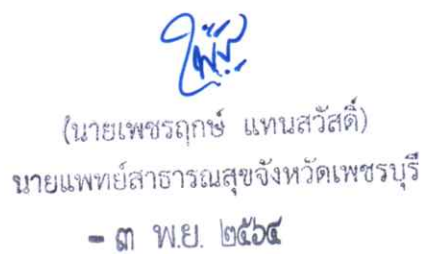 (นายเพชรฤกษ์ แทนสวัสดิ์)
นายแพทย์สาธารณสุขจังหวัดเพชรบุรี
- ๓ พ.ย. ๒๕๖๔